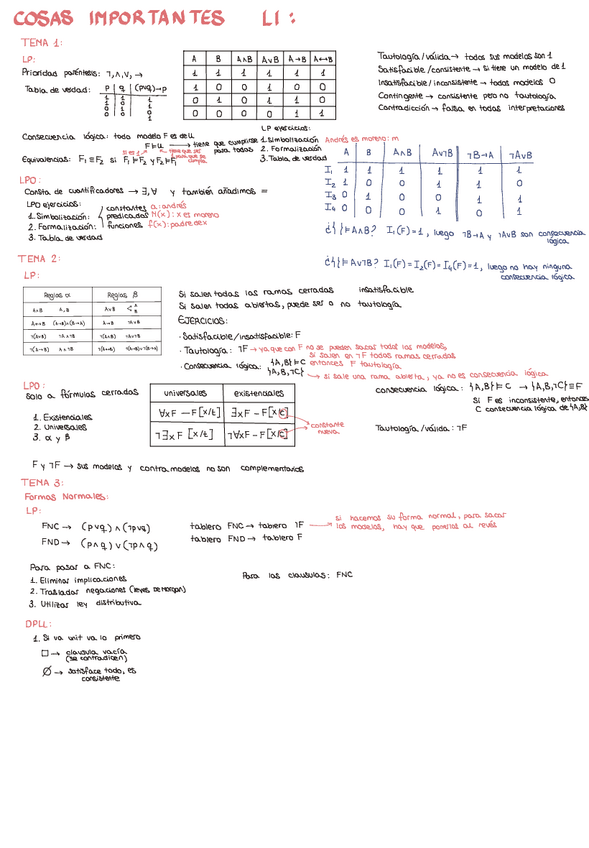 COSAS IMPORTANTES LI:
TEMA 1:
LP:
Prioridad paréntesis: ¬, ∧, ∨, →
Tabla de verdad: p q (p∨q)→p
1 1 1
1 0 1
0 1 0
0 0 1
A B A∧B A∨B A→B A↔B
1 1 1 1 1 1
1 0 0 1 0 0
0 1 0 1 1 0
0 0 0 0 1 1
Tautología/válida → todos sus modelos son 1
Satisfacible/consistente → si tiene un modelo de 1
Insatisfacible/inconsistente → todos modelos 0
Contingente → consistente pero no tautología
Contradicción → falsa en todas interpretaciones
Consecuencia lógica: todo modelo F es de U
F ⊨ U → tiene que cumplirse para todas
si es 1 tiene que ser para que se cumpla
Equivalencias: F1 ≡ F2 si F1 ⊨ F2 y F2 ⊨ F1
LP ejercicios:
1. Simbolización Andrés es moreno: m
2. Formalización
3. Tabla de verdad
A B A∧B A∨¬B ¬B→A ¬A∨B
I1 1 1 1 1 1 1
I2 1 0 0 1 1 0
I3 0 1 0 0 1 1
I4 0 0 0 1 0 1
¿{ } ⊨ A∧B? I1(F)=1, luego ¬B→A y ¬A∨B son consecuencia lógica
¿{ } ⊨ A∨¬B? I1(F)=I2(F)=I4(F)=1, luego no hay ninguna consecuencia lógica
LPO:
Consta de cuantificadores → ∃, ∀ y también añadimos =
LPO ejercicios:
1. Simbolización: constantes a: andrés
predicados M(x): x es moreno
funciones f(x): padre de x
2. Formalización:
3. Tabla de verdad
TEMA 2:
LP:
Reglas α Reglas β
A∧B A,B A∨B A B
A↔B (A→B)∧(B→A) A→B ¬A∨B
¬(A∨B) ¬A∧¬B ¬(A∧B) ¬A∨¬B
¬(A→B) A∧¬B ¬(A↔B) ¬(A→B)∨¬(B→A)
Si salen todas las ramas cerradas insatisfacible
Si salen todas abiertas, puede ser o no tautología
EJERCICIOS:
· Satisfacible/insatisfacible: F
· Tautología: ¬F → ya que con F no se pueden sacar todos los modelos,
si salen en ¬F todas ramas cerradas
entonces F tautología
· Consecuencia lógica: {A,B} ⊨ C
{A,B,¬C} → si sale una rama abierta, ya no es consecuencia lógica
LPO:
Solo a fórmulas cerradas
1. Existenciales
2. Universales
3. α y β
universales existenciales
∀xF – F[x/t] ∃xF – F[x/c]
¬∃xF [x/t] ¬∀xF – F[x/c]
constante nueva
consecuencia lógica: {A,B} ⊨ C → {A,B,¬C} ≡ F
Si F es inconsistente, entonces
C consecuencia lógica de {A,B}
Tautología/válida: ¬F
F y ¬F → sus modelos y contramodelos no son complementarios
TEMA 3:
Formas Normales:
LP:
FNC → (p∨q) ∧ (¬p∨q)
FND → (p∧q) ∨ (¬p∧q)
tablero FNC → tablero ¬F
tablero FND → tablero F
si hacemos su forma normal, para sacar
los modelos, hay que ponerlos al revés
Para pasar a FNC:
1. Eliminar implicaciones
2. Trasladar negaciones (leyes de Morgan)
3. Utilizar ley distributiva
Para las clausulas: FNC
DPLL:
1. Si va unit va lo primero
□ → clausula vacía
(se contradicen)
∅ → satisface todo, es
consistente